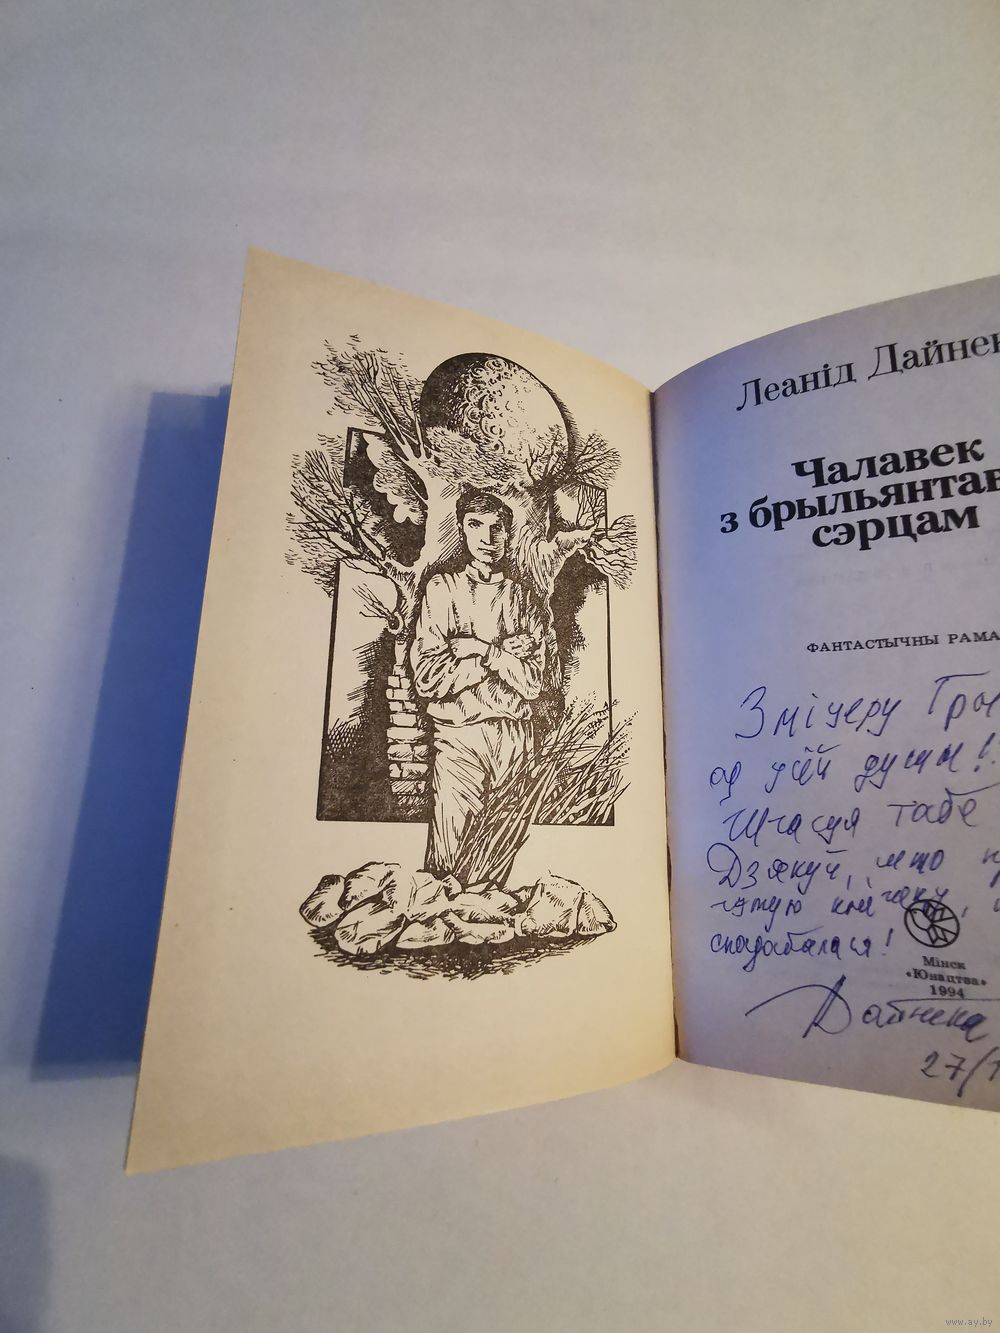 Леанід Дайнек
Чалавек
з брыльянтав
сэрцам
ФАНТАСТЫЧНЫ РАМА
Зміцеру Гры
ад усёй душы!
Шчасця табе
Дзякуй, што пр
гэтую кніжку,
спадабалася!
Мінск
«Юнацтва»
1994
Дайнека
27/1
www.ay.by